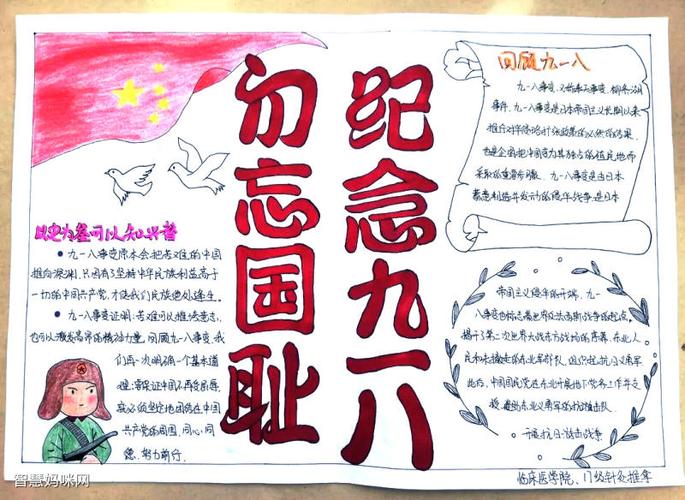 纪念九一八
勿忘国耻
回顾九一八
九一八事变,又称奉天事变、柳条湖
事件,九一八事变是日本帝国主义长期以来
推行对华侵略扩张政策的必然结果,
也是企图把中国变为其独占的殖民地而
采取的重要步骤。九一八事变是由日本
蓄意制造并发动的侵华战争,是日本
帝国主义侵华的开端,九一
八事变也标志着世界反法西斯战争的起点,
揭开了第二次世界大战东方战场的序幕,东北人
民和未撤走的东北军部队,组织起抗日义勇军
此后,中国国民党在东北开展地下党务工作之
东北义勇军等抗
开展抗日游击战争
以史为鉴可以知兴替
● 九一八事变原本会把苦难的中国
推向深渊,只因有了坚持中华民族利益高于
一切的中国共产党,才使我们民族绝处逢生。
● 九一八事变证明:苦难可以摧毁意志,
也可以激发高昂的精神力量,回顾九一八事变,我
们再一次明确一个基本道
理:要保证中国不再受屈辱,
就必须坚定地团结在中国
共产党的周围,同心同
德,努力前行。
临床医学院、17级针灸推拿
智慧妈咪网